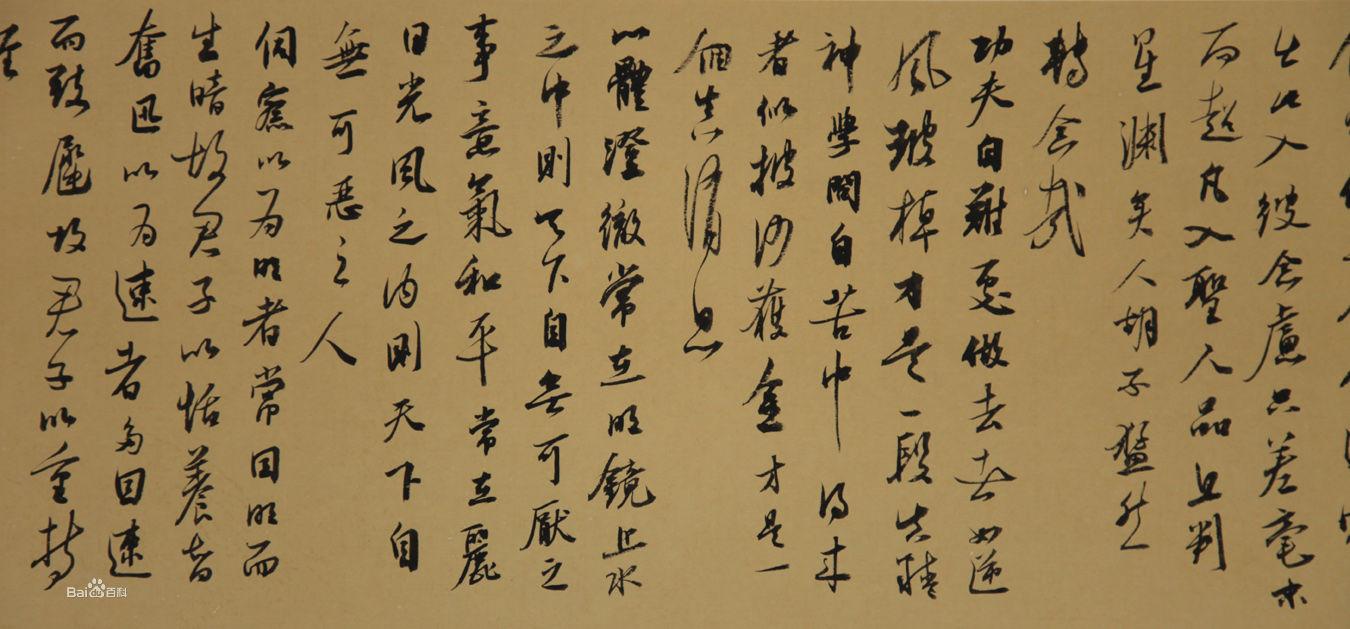 出此入彼念慮只差毫末
而超凡入聖人品且判
星淵矣人胡不猛然
轉念哉
功夫自難處做去去如逆
風皷棹才是一段真精
神學問自苦中得來
者似披沙獲金才是一
個真消息
心體澄徹常在明鏡止水
之中則天下自無可厭之
事意氣和平常在麗
日光風之内則天下自
無可惡之人
伺察以为明者常因明而
生暗故君子以恬養智
奮迅以为速者多因速
而致遲故君子以重持
Bai百科